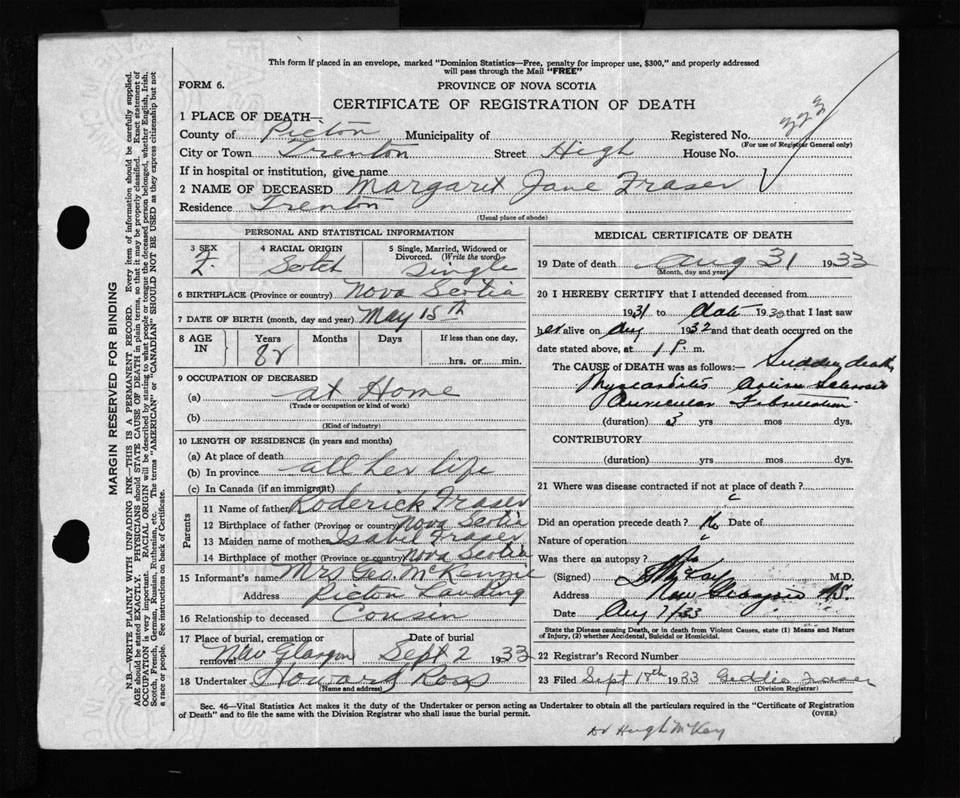 This form if placed in an envelope, marked "Dominion Statistics—Free, penalty for improper use, $300," and properly addressed
will pass through the Mail "FREE"
FORM 6.
PROVINCE OF NOVA SCOTIA
CERTIFICATE OF REGISTRATION OF DEATH
1 PLACE OF DEATH—
County of Picton Municipality of Registered No. 323
(For use of Registrar General only)
City or Town Trenton Street High House No.
If in hospital or institution, give name
2 NAME OF DECEASED Margaret Jane Fraser
Residence Trenton
(Usual place of abode)
PERSONAL AND STATISTICAL INFORMATION
3 SEX F. 4 RACIAL ORIGIN Scotch 5 Single, Married, Widowed or Divorced. (Write the word) Single
6 BIRTHPLACE (Province or country) Nova Scotia
7 DATE OF BIRTH (month, day and year) May 15th
8 AGE IN Years 82 Months Days If less than one day. hrs. or min.
9 OCCUPATION OF DECEASED
(a) at Home
(Trade or occupation or kind of work)
(b)
(Kind of industry)
10 LENGTH OF RESIDENCE (in years and months)
(a) At place of death
(b) In province all her life
(c) In Canada (if an immigrant)
Parents
11 Name of father Roderick Fraser
12 Birthplace of father (Province or country) Nova Scotia
13 Maiden name of mother Isabel Fraser
14 Birthplace of mother (Province or country) Nova Scotia
15 Informant's name Mrs Geo. McKenzie
Address Picton Landing
16 Relationship to deceased Cousin
17 Place of burial, cremation or removal New Glasgow Date of burial Sept 2 1933
18 Undertaker Howard Ross
(Name and address)
MEDICAL CERTIFICATE OF DEATH
19 Date of death Aug 31 1933
(Month, day and year)
20 I HEREBY CERTIFY that I attended deceased from
1931 to date 193 that I last saw
her alive on Aug 1932 and that death occurred on the
date stated above, at 1 P. m.
The CAUSE OF DEATH was as follows:— Sudden death
Myocarditis
Auricular Fibrillation
(duration) 3 yrs mos dys.
CONTRIBUTORY
(duration) yrs mos dys.
21 Where was disease contracted if not at place of death?
Did an operation precede death? No Date of
Nature of operation
Was there an autopsy? No
(Signed) McKay M.D.
Address New Glasgow N.S.
Date Aug /33
State the Disease causing Death, or in death from Violent Causes, state (1) Means and Nature
of Injury, (2) whether Accidental, Suicidal or Homicidal.
22 Registrar's Record Number
23 Filed Sept 18th 1933 Geddie Fraser
(Division Registrar)
Sec. 46—Vital Statistics Act makes it the duty of the Undertaker or person acting as Undertaker to obtain all the particulars required in the "Certificate of Registration
of Death" and to file the same with the Division Registrar who shall issue the burial permit. (OVER)
Dr Hugh McKay
MARGIN RESERVED FOR BINDING
N.B.—WRITE PLAINLY WITH UNFADING INK—THIS IS A PERMANENT RECORD. Every item of information should be carefully supplied.
AGE should be stated EXACTLY. PHYSICIANS should STATE CAUSE OF DEATH in plain terms, so that it may be properly classified. Exact statement of
OCCUPATION is very important. RACIAL ORIGIN will be described by stating to what people or tongue the deceased person belonged, whether English, Irish,
Scotch, French, German, Russian, Ruthenian, etc. The terms "AMERICAN" or "CANADIAN" SHOULD NOT BE USED as they express citizenship but not
a race or people. See instructions on back of Certificate.